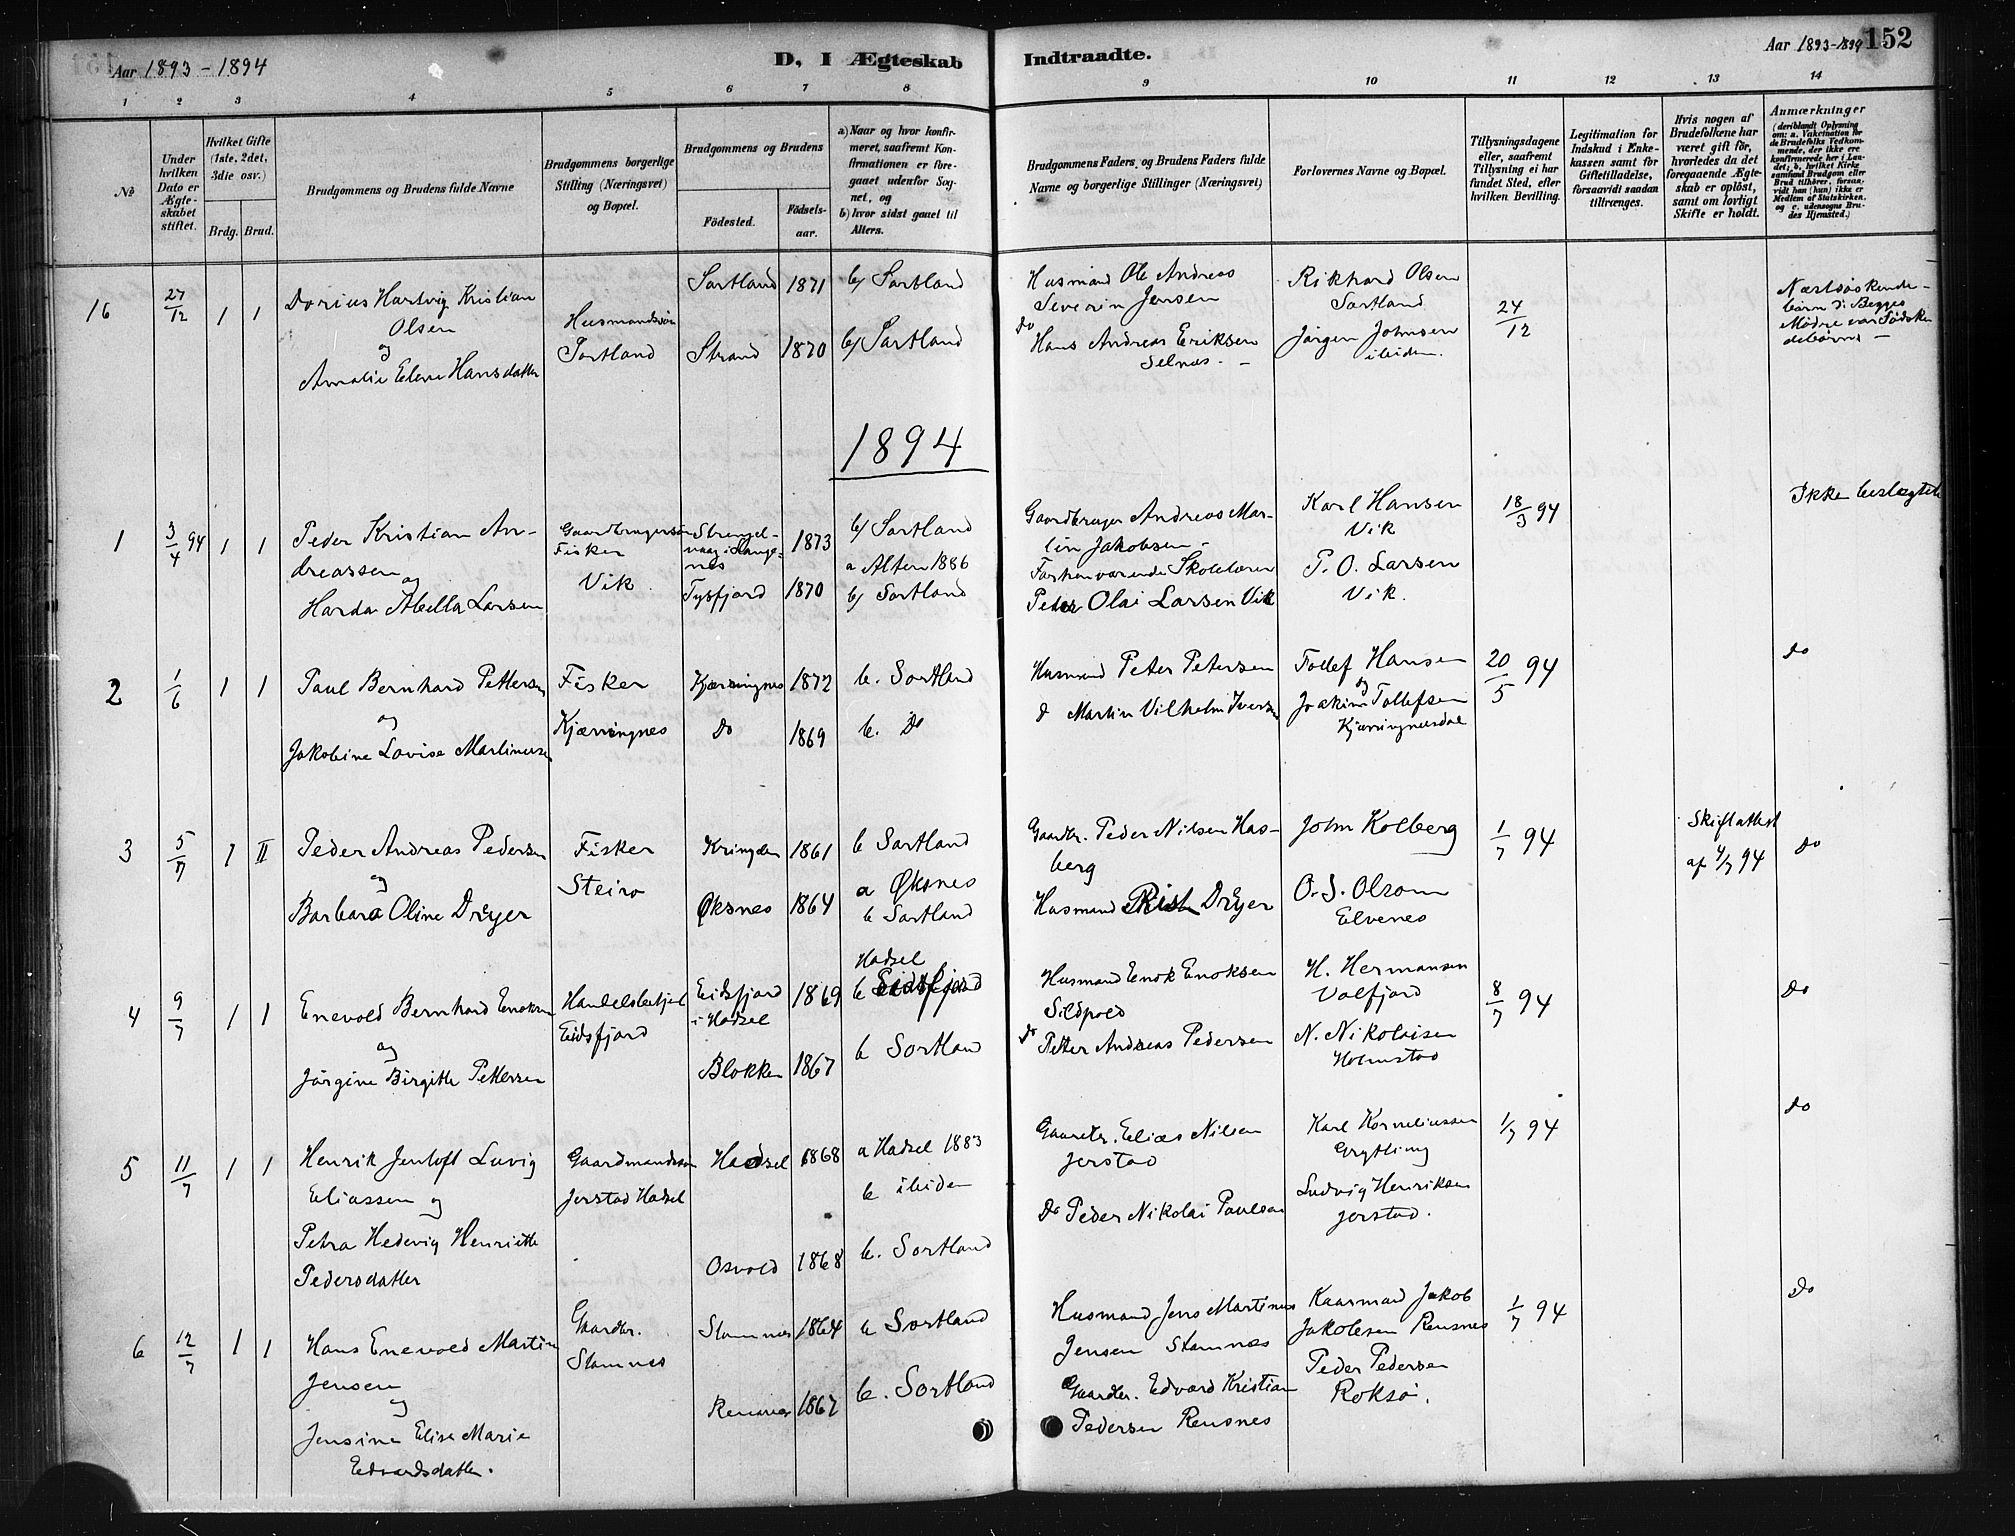 Aar 1893-1894
D, I Ægteskab
Indtraadte.
Aar 1893-1894
152
1 2 3 4 5 6 7 8 9 10 11 12 13 14
No
Under hvilken Dato er Ægteskabet stiftet.
Hvilket Gifte (1ste, 2det, 3die osv.)
Brdg. Brud.
Brudgommens og Brudens fulde Navne
Brudgommens borgerlige Stilling (Næringsvei) og Bopæl.
Brudgommens og Brudens
Fødested.
Fødselsaar.
a) Naar og hvor konfirmeret, saafremt Konfirmationen er foregaaet udenfor Sognet, og
b) hvor sidst gaaet til Alters.
Brudgommens Faders, og Brudens Faders fulde Navne og borgerlige Stillinger (Næringsvei)
Forlovernes Navne og Bopæl.
Tillysningsdagene eller, saafremt Tillysning ei har fundet Sted, efter hvilken Bevilling.
Legitimation for Indskud i Enkekassen samt for Giftetilladelse, forsaavidt saadan tiltrænges.
Hvis nogen af Brudefolkene har været gift før, hvorledes da det foregaaende Ægteskab er opløst, samt om lovligt Skifte er holdt.
Anmærkninger
(deriblandt Oplysning om: a. Vakcination for de Brudefolks Vedkommende, der ikke ere konfirmerede her i Landet; b. hvilket Kirkesamfund Brudgom eller Brud tilhører, forsaavidt han (hun) ikke er Medlem af Statskirken, og c. udensogns Brudes Hjemsted.)
16 27/12 1 1
Dorius Hartvig Kristian
Olsen
og
Amalie Elene Hansdatter
Husmandssøn
Sortland
Sortland 1871 b/ Sortland
Strand 1870 b/ Sortland
Husmand Ole Andreas
Severin Jensen
do
Hans Andreas Eriksen
Selnæs -
Rikhard Olsen
Sortland
Jørgen Johnsen
ibiden.
24/12
Næstsøskende-
børn d: Begges
Mødre var Sødsken
debørns -
1894
1 3/4 94 1 1
Peder Kristian An-
dreassen
og
Harda Abella Larsen
Gaardbrugersøn
Fisker
Vik
Strengel-
vaag i Lange-
nes 1873
Tysfjord 1870
b/ Sortland
a Alten 1886
b/ Sortland
Gaardbruger Andreas Mar-
tin Jakobsen -
Forhenværende Skolelærer
Peter Olai Larsen Vik
Karl Hansen
Vik
P. O. Larsen
Vik.
18/3 94
Ikke beslægtet
2 1/6 1 1
Paul Bernhard Pettersen
og
Jakobine Lovise Martinussen
Fisker
Kjærringnes
Kjærringnes 1872 b. Sortland
do 1869 b. do
Husmand Peter Petersen
d Martin Vilhelm Iversen
Tollef Hansen
og
Joakim Tollefsen
Kjærringnesdal
20/5 94
do
3 5/7 1 II
Peder Andreas Pedersen
og
Barbara Oline Dreyer
Fisker
Steiro
Kringlen 1861 b Sortland
Øksnes 1864 a Øksnes
b Sortland
Gaardbr. Peder Nilsen Has-
berg
Husmand Rist Dreyer
John Kolberg
O. J. Olsom
Elvenes
1/7 94
Skiftattest
af 4/7 94
do
4 9/7 1 1
Enevold Bernhard Enoksen
og
Jørgine Birgitte Pettersen
Handelsbetjent
Eidsfjord
Eidsfjord
i Hadsel 1869
Blokken 1867
Hadsel
b Eidsfjord
b Sortlan
Husmand Enok Enoksen
Sildpold
do
Petter Andreas Pedersen
H. Hermansen
Valfjord
N. Nikolaisen
Holmstad
8/7 94
do
5 11/7 1 1
Henrik Jentoft Luvig
Eliassen og
Petra Hedevig Henriette
Pedersdatter
Gaardmandssøn
Jerstad Hadsel
Hadsel 1868 a Hadsel 1883
b ibiden
Osvold 1868 b. Sortland
Gaardbr. Elias Nilsen
Jerstad
do Peder Nikolai Paulsen
Karl Korneliussen
Grytting
Ludvig Henriksen
Jerstad.
1/7 94
do
6 12/7 1 1
Hans Enevold Martin
Jensen
og
Jensine Elise Marie
Edvardsdatter.
Gaardbr.
Slamnes
Slamnes 1864 b Sortland
Rensnes 1867 b. Sortland
Husmand Jens Martinus
Jensen Slamnæs
Gaardbr. Edvard Kristian
Pedersen Rensnes
Kaarmad Jakob
Jakobsen Rensnes
Peder Pedersen
Roksø.
1/7 94
do